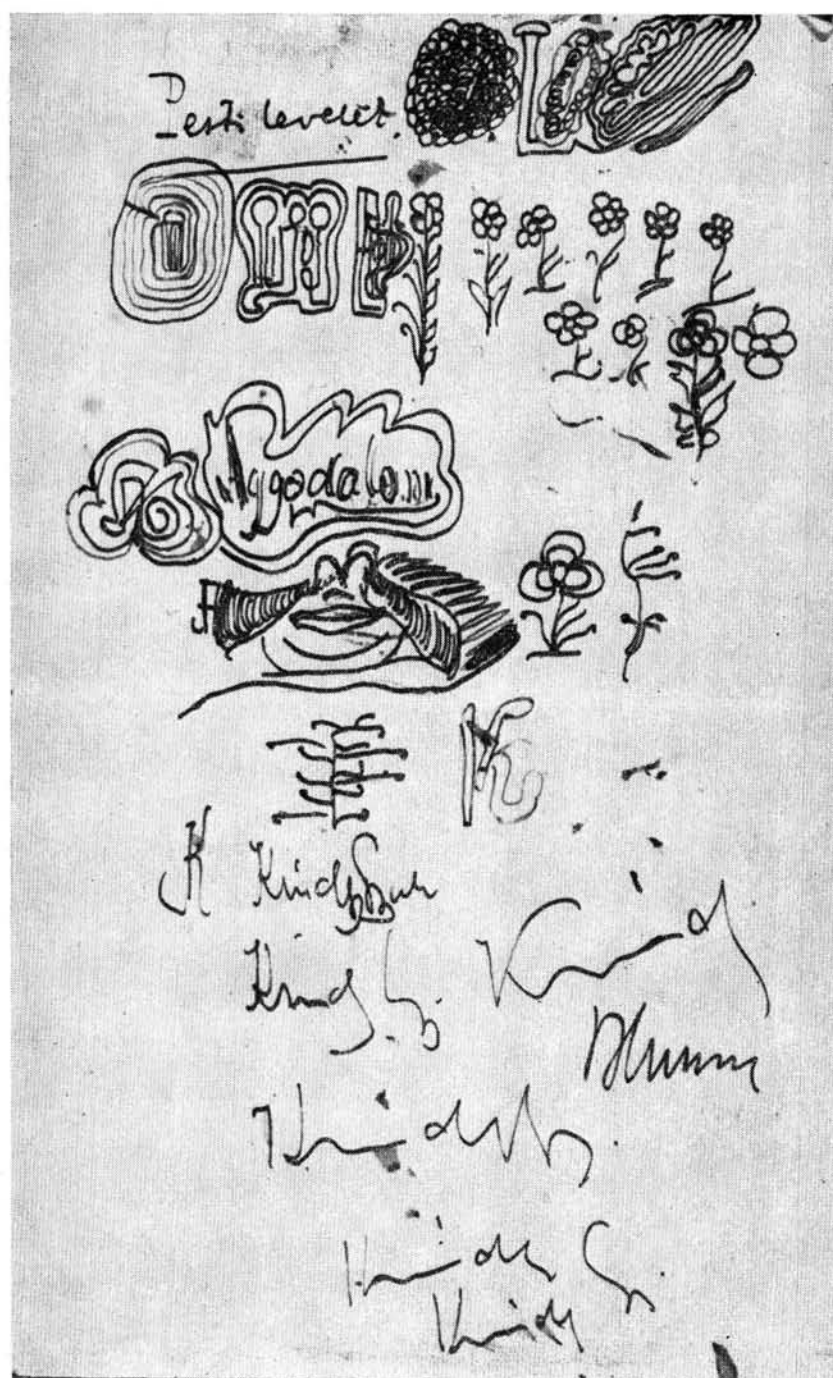 Pesti levelek.
Aggodalom
K
K Krúdy Gyula
Krúdy Gy. Krúdy
Krúdy Gy.
Krúdy Gy.
Krúdy